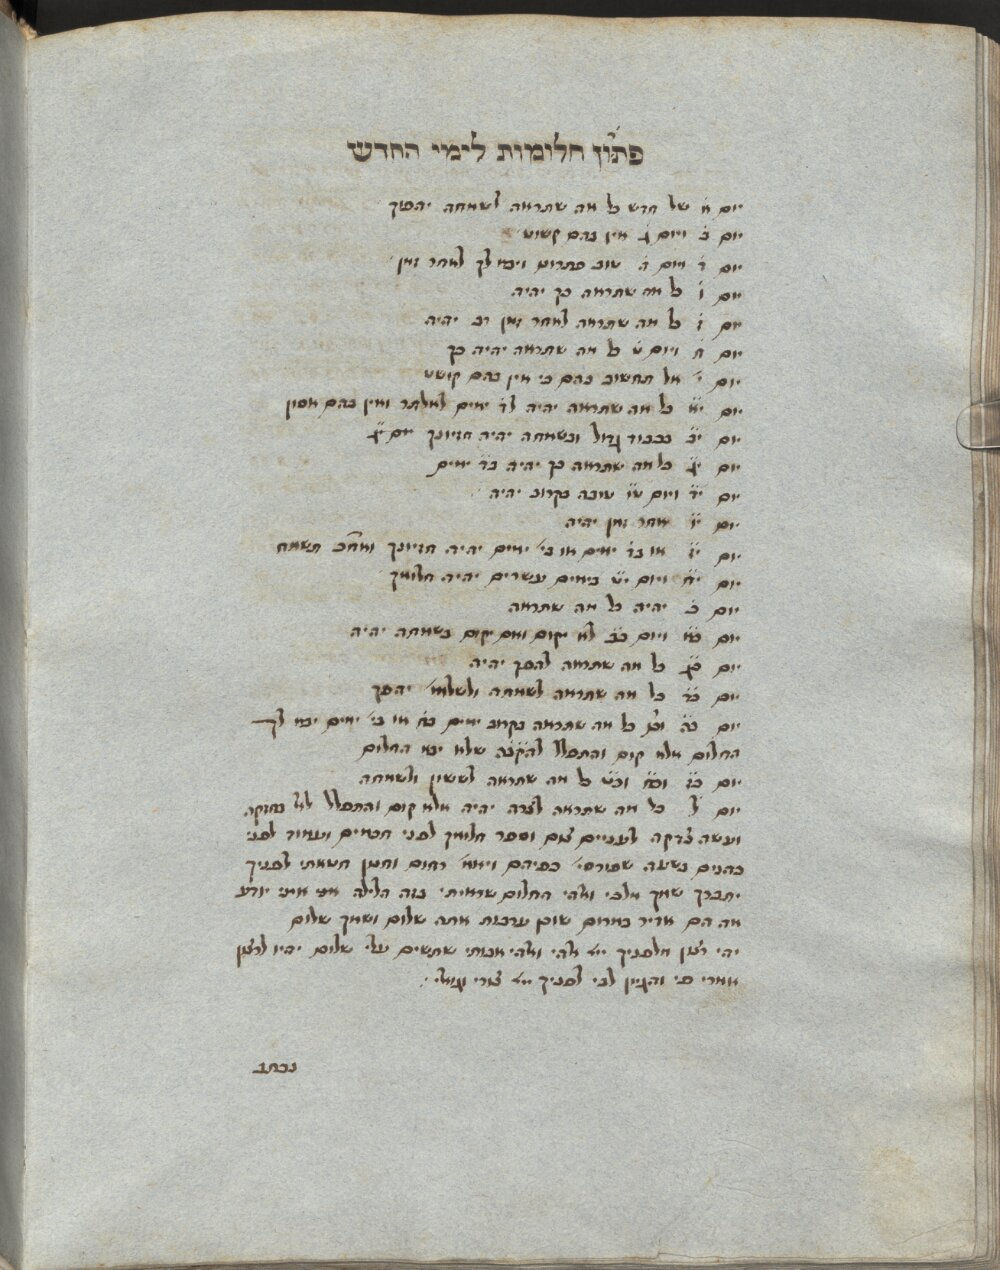 פתרון חלומות לימי החדש
יום א׳ של חדש כל מה שתראה לשמחה יהפוך
יום ב׳ ויום ג׳ אין בהם קשוט
יום ד׳ ויום ה׳ טוב פתרונו ויבא לך לאחר זמן
יום ו׳ כל מה שתראה כך יהיה
יום ז׳ כל מה שתראה לאחר זמן רב יהיה
יום ח׳ ויום ט׳ כל מה שתראה יהיה כך
יום י׳ אל תחשוב בהם כי אין בהם קושט
יום י״א כל מה שתראה יהיה לד׳ ימים לאלתר ואין בהם אסון
יום י״ב בכבוד גדול ובשמחה יהיה חזיונך יום י״ג
יום י״ג כל מה שתראה כך יהיה בד׳ ימים
יום י״ד ויום ט״ו טובה בקרוב יהיה
יום י״ו אחר זמן יהיה
יום י״ז או בד׳ ימים או בי׳ ימים יהיה חזיונך ואח״כ תשמח
יום י״ח ויום י״ט בימים עשרים יהיה חלומך
יום כ׳ יהיה כל מה שתראה
יום כ״א ויום כ״ב לא יקום ואם יקום בשמחה יהיה
יום כ״ג כל מה שתראה להפך יהיה
יום כ״ד כל מה שתראה לשמחה ולשלו׳ יהפך
יום כ״ה וכ״ו כל מה שתראה בקרוב ימים בח׳ או בי׳ ימים יבא לך
החלום אלא קום והתפלל להקב״ה שלא יבא החלום
יום כ״ז וכ״ח וכ״ט כל מה שתראה לששון ולשמחה
יום ל׳ כל מה שתראה לצרה יהיה אלא קום והתפלל לאל בחזקה
ועשה צדקה לעניים צום וספר חלומך לפני חכמים ועמוד לפני
כהנים בשעה שפורסי׳ כפיהם ויאמ׳ רחום וחנון חטאתי לפניך
יתברך שמך מלכי ואלהי החלום שראיתי בזה הלילה אני איני יודע
מה הם אדיר במרום שוכן ערבות אתה שלום ושמך שלום
יהי רצון מלפניך ייי אלהי ואלהי אבותי שתשים עלי שלום יהיו לרצון
אמרי פי והגיון לבי לפניך ייי צורי וגואלי
נכתב